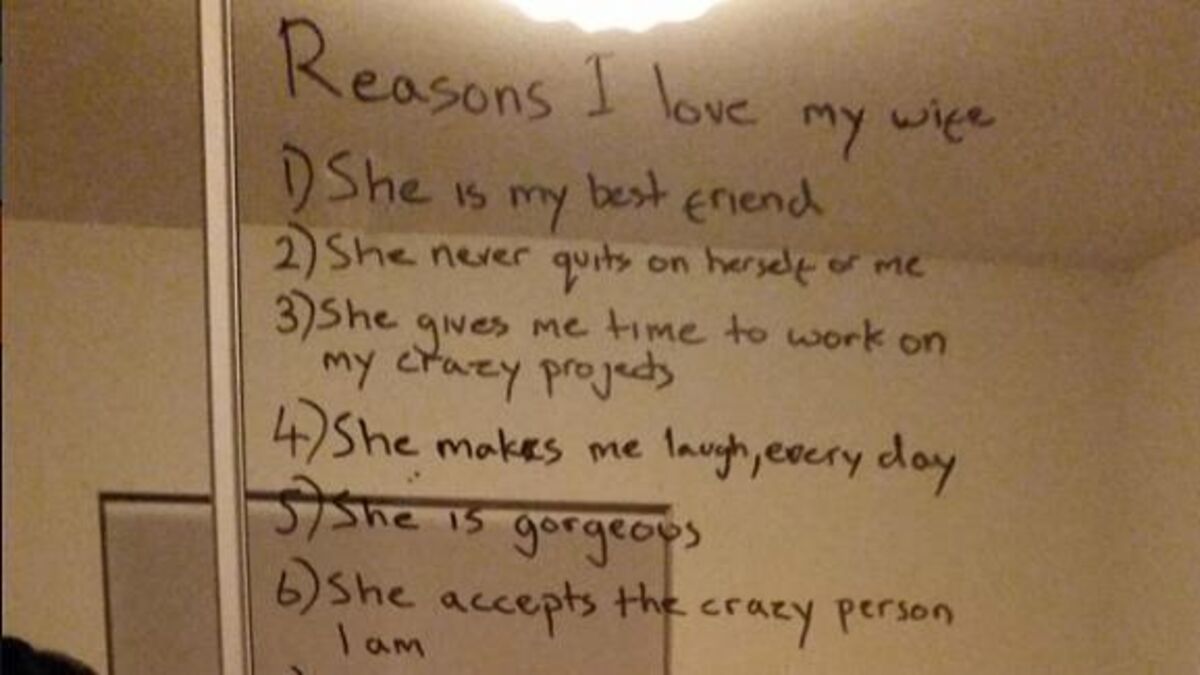 Reasons I love my wife
1) She is my best friend
2) She never quits on herself or me
3) She gives me time to work on
my crazy projects
4) She makes me laugh, every day
5) She is gorgeous
6) She accepts the crazy person
I am